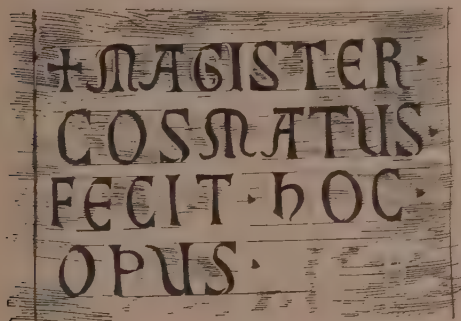 +MAGISTER·
COSMATUS·
FECIT·hOC·
OPUS·